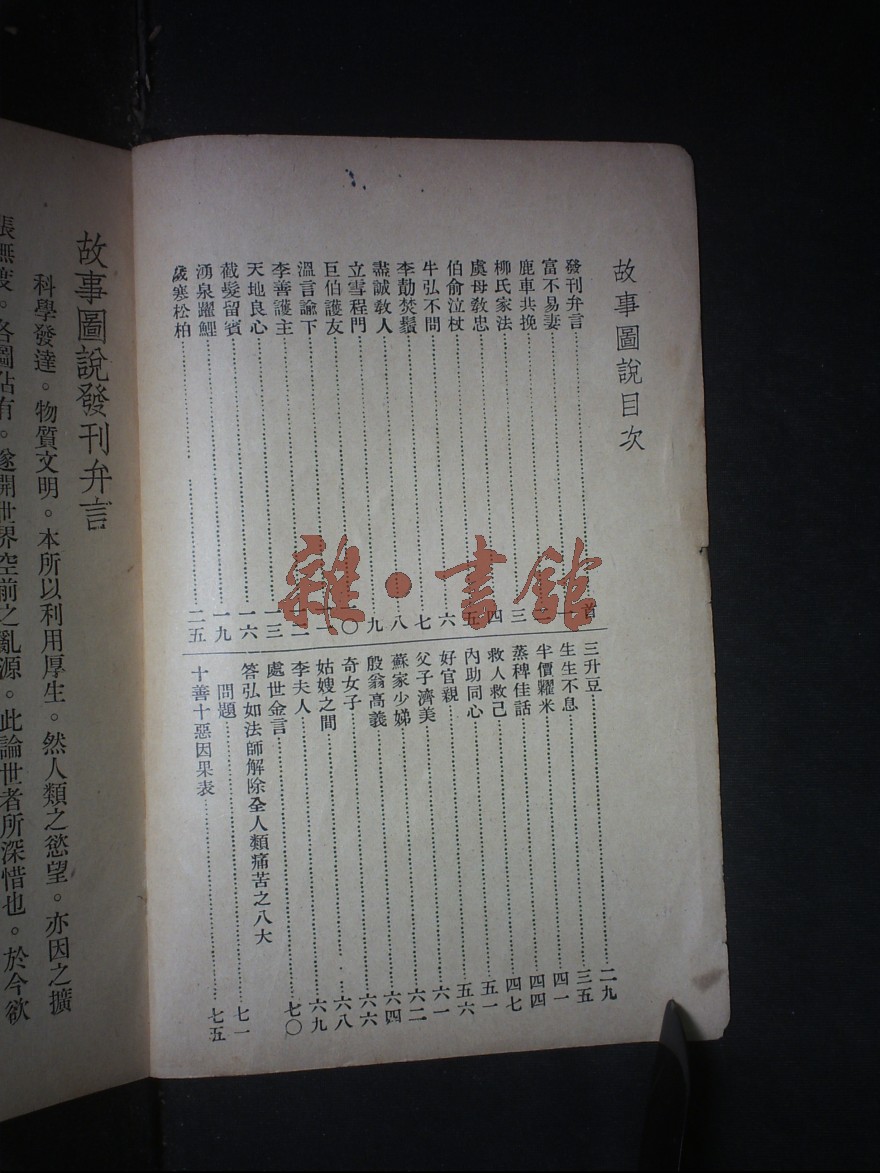 故事圖說目次
發刊弁言……首
富不易妻……一
鹿車共挽……二
柳氏家法……三
虞母教忠……四
伯俞泣杖……五
牛弘不問……六
李勣焚鬚……七
盡誠教人……八
立雪程門……九
巨伯護友……一〇
溫言諭下……一一
李善護主……一二
天地良心……一三
截髮留賓……一六
湧泉躍鯉……一九
歲寒松柏……二五
三升豆……二九
生生不息……三五
半價糶米……四一
蒸稗佳話……四四
救人救己……四七
內助同心……五一
好官親……五六
父子濟美……六一
蘇家少娣……六二
殷翁高義……六四
奇女子……六六
姑嫂之間……六八
李夫人……六九
處世金言……七〇
答弘如法師解除全人類痛苦之八大
問題……七一
十善十惡因果表……七五
雜·書館
故事圖說發刊弁言
科學發達。物質文明。本所以利用厚生。然人類之慾望。亦因之擴
張無度。各圖佔有。遂開世界空前之亂源。此論世者所深惜也。於今欲